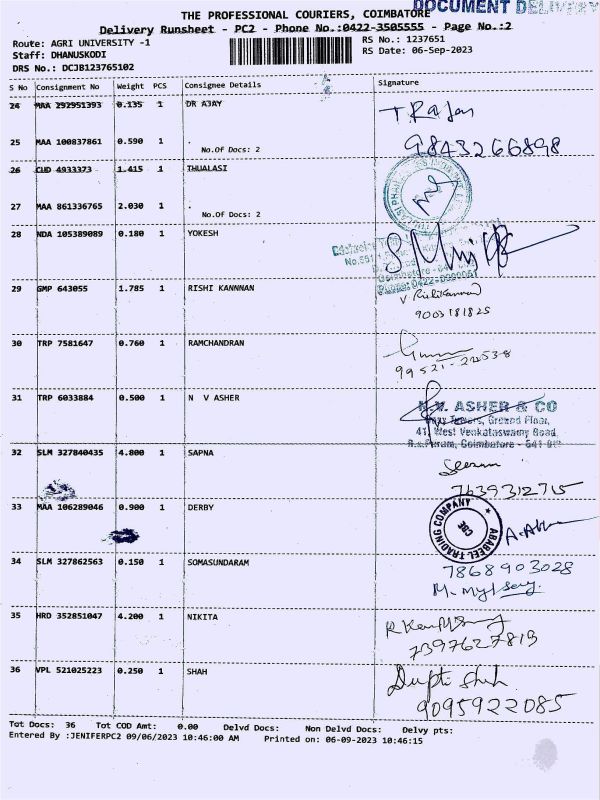 DOCUMENT DELIVERY
THE PROFESSIONAL COURIERS, COIMBATORE
Delivery Runsheet - PC2 - Phone No.:0422-3505555 - Page No.:2
Route: AGRI UNIVERSITY -1
RS No.: 1237651
Staff: DHANUSKODI
RS Date: 06-Sep-2023
DRS No.: DCJB123765102
S No Consignment No Weight PCS Consignee Details Signature
24 MAA 292951393 0.135 1 DR AJAY T. Rajan
25 MAA 100837861 0.590 1 . 9843266898
No.Of Docs: 2
26 CUD 4933373 1.415 1 THUALASI
27 MAA 861336765 2.030 1 .
No.Of Docs: 2
28 NDA 105389089 0.180 1 YOKESH
29 GMP 643055 1.785 1 RISHI KANNNAN V Rishikannan
9003181825
30 TRP 7581647 0.760 1 RAMCHANDRAN
99521-24538
31 TRP 6033884 0.500 1 N V ASHER N.V. ASHER & CO
Towers, Ground Floor,
41, West Venkataswamy Road,
R.s.Puram, Coimbatore - 641
32 SLM 327840435 4.800 1 SAPNA
7639312715
33 MAA 106289046 0.900 1 DERBY ABABEEL TRADING COMPANY CBE
34 SLM 327862563 0.150 1 SOMASUNDARAM 7868903028
35 HRD 352851047 4.200 1 NIKITA
7397627819
36 VPL 521025223 0.250 1 SHAH Dupti Shah
9095922085
Tot Docs: 36 Tot COD Amt: 0.00 Delvd Docs: Non Delvd Docs: Delvy pts:
Entered By :JENIFERPC2 09/06/2023 10:46:00 AM Printed on: 06-09-2023 10:46:15